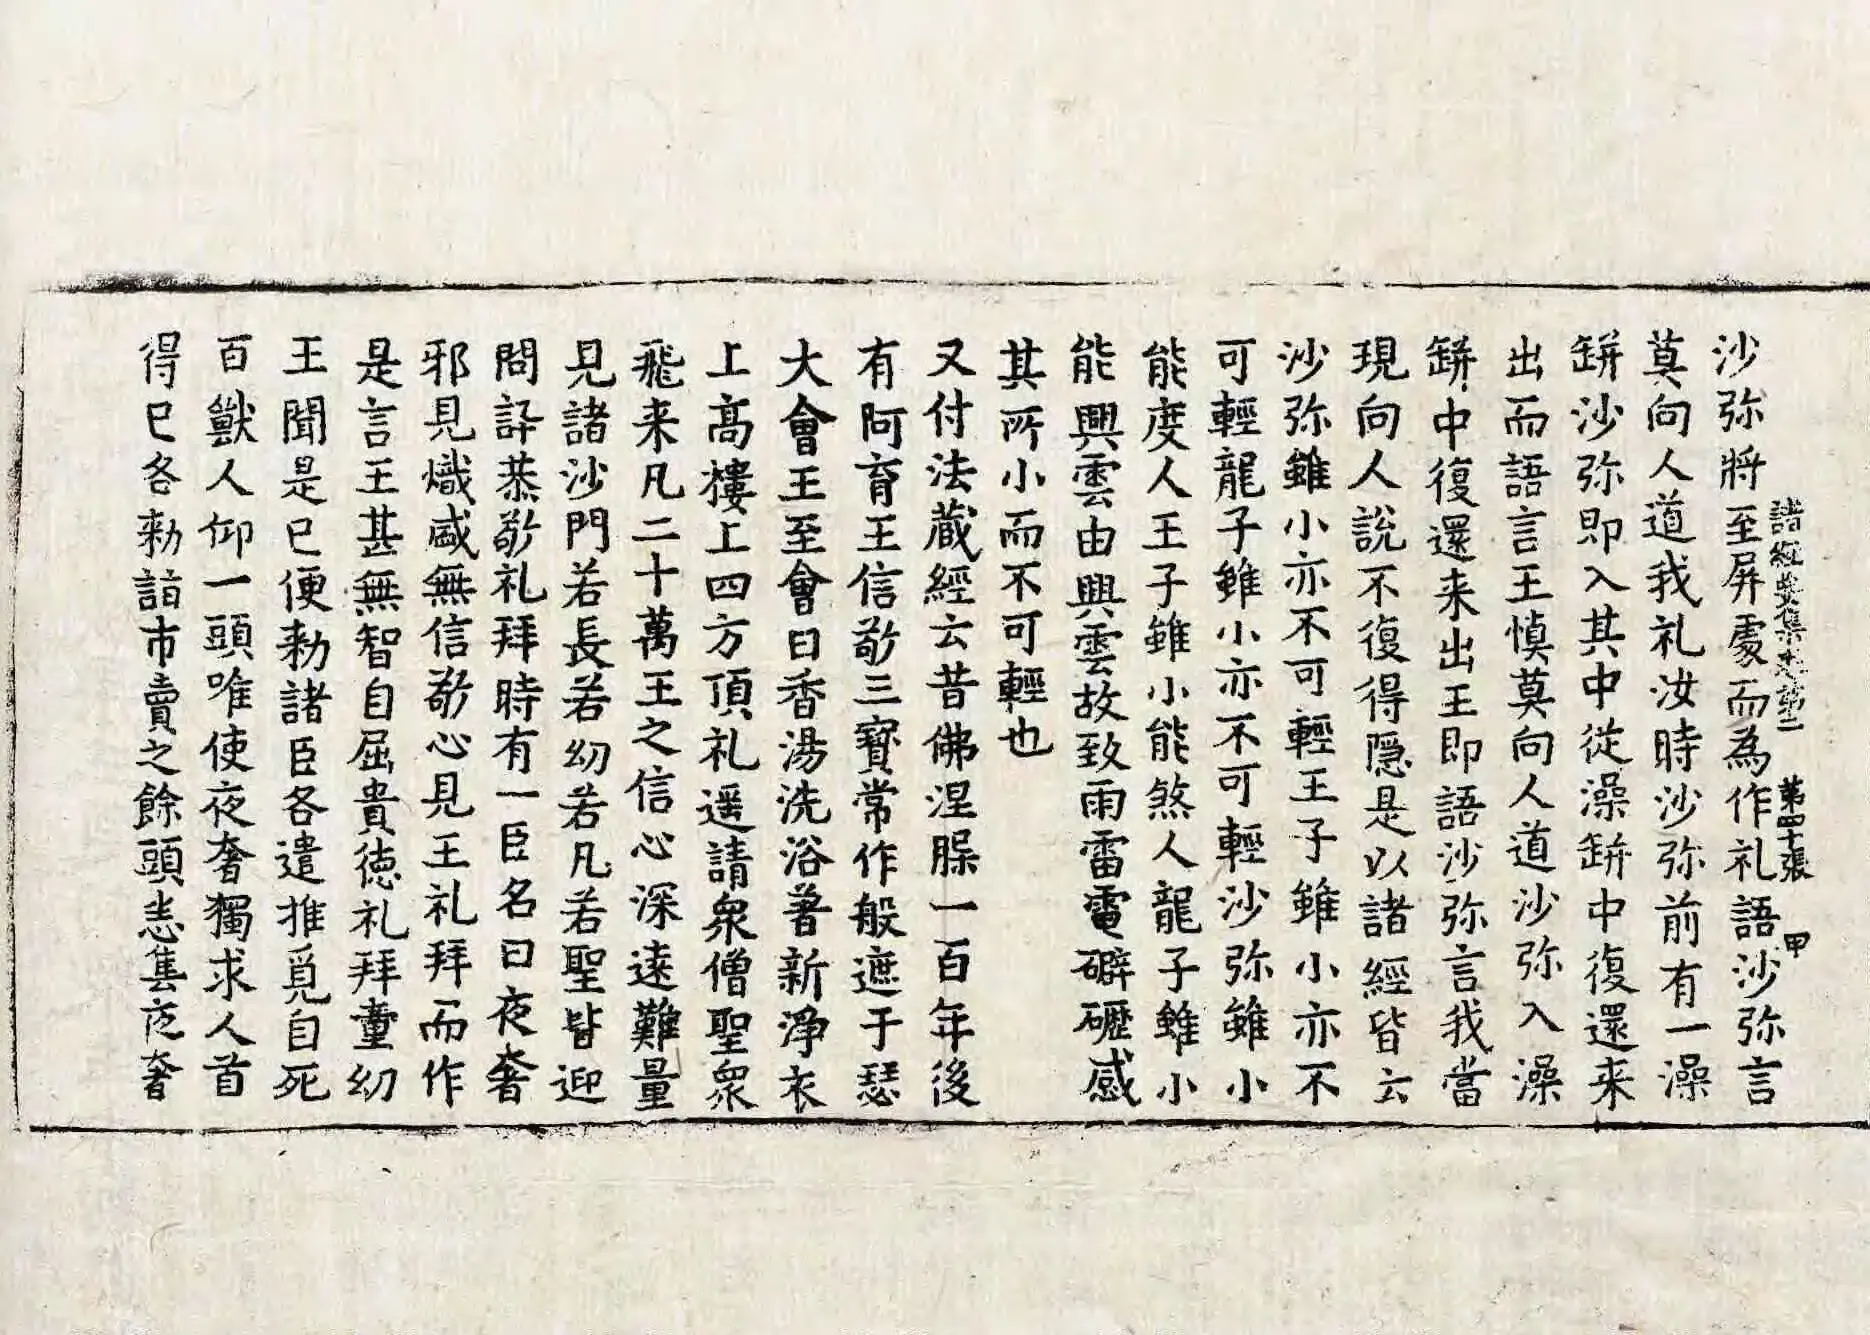 沙弥將至屏處而為作礼語沙弥言
諸經要集卷第二 第四十張 甲
莫向人道我礼汝時沙弥前有一澡
缾沙弥即入其中從澡缾中復還来
出而語言王慎莫向人道沙弥入澡
缾中復還来出王即語沙弥言我當
現向人說不復得隱是以諸經皆云
沙弥雖小亦不可輕王子雖小亦不
可輕龍子雖小亦不可輕沙弥雖小
能度人王子雖小能煞人龍子雖小
能興雲由興雲故致雨雷電礔礰感
其所小而不可輕也
又付法蔵經云昔佛涅槃一百年後
有阿育王信敬三寶常作般遮于瑟
大會王至會日香湯洗浴著新淨衣
上高樓上四方頂礼遥請衆僧聖衆
飛来凡二十萬王之信心深遠難量
見諸沙門若長若幼若凡若聖皆迎
問訊恭敬礼拜時有一臣名曰夜奢
邪見熾盛無信敬心見王礼拜而作
是言王甚無智自屈貴徳礼拜童幼
王聞是已便勑諸臣各遣推覓自死
百獸人仰一頭唯使夜奢獨求人首
得已各勑詣市賣之餘頭悉售夜奢